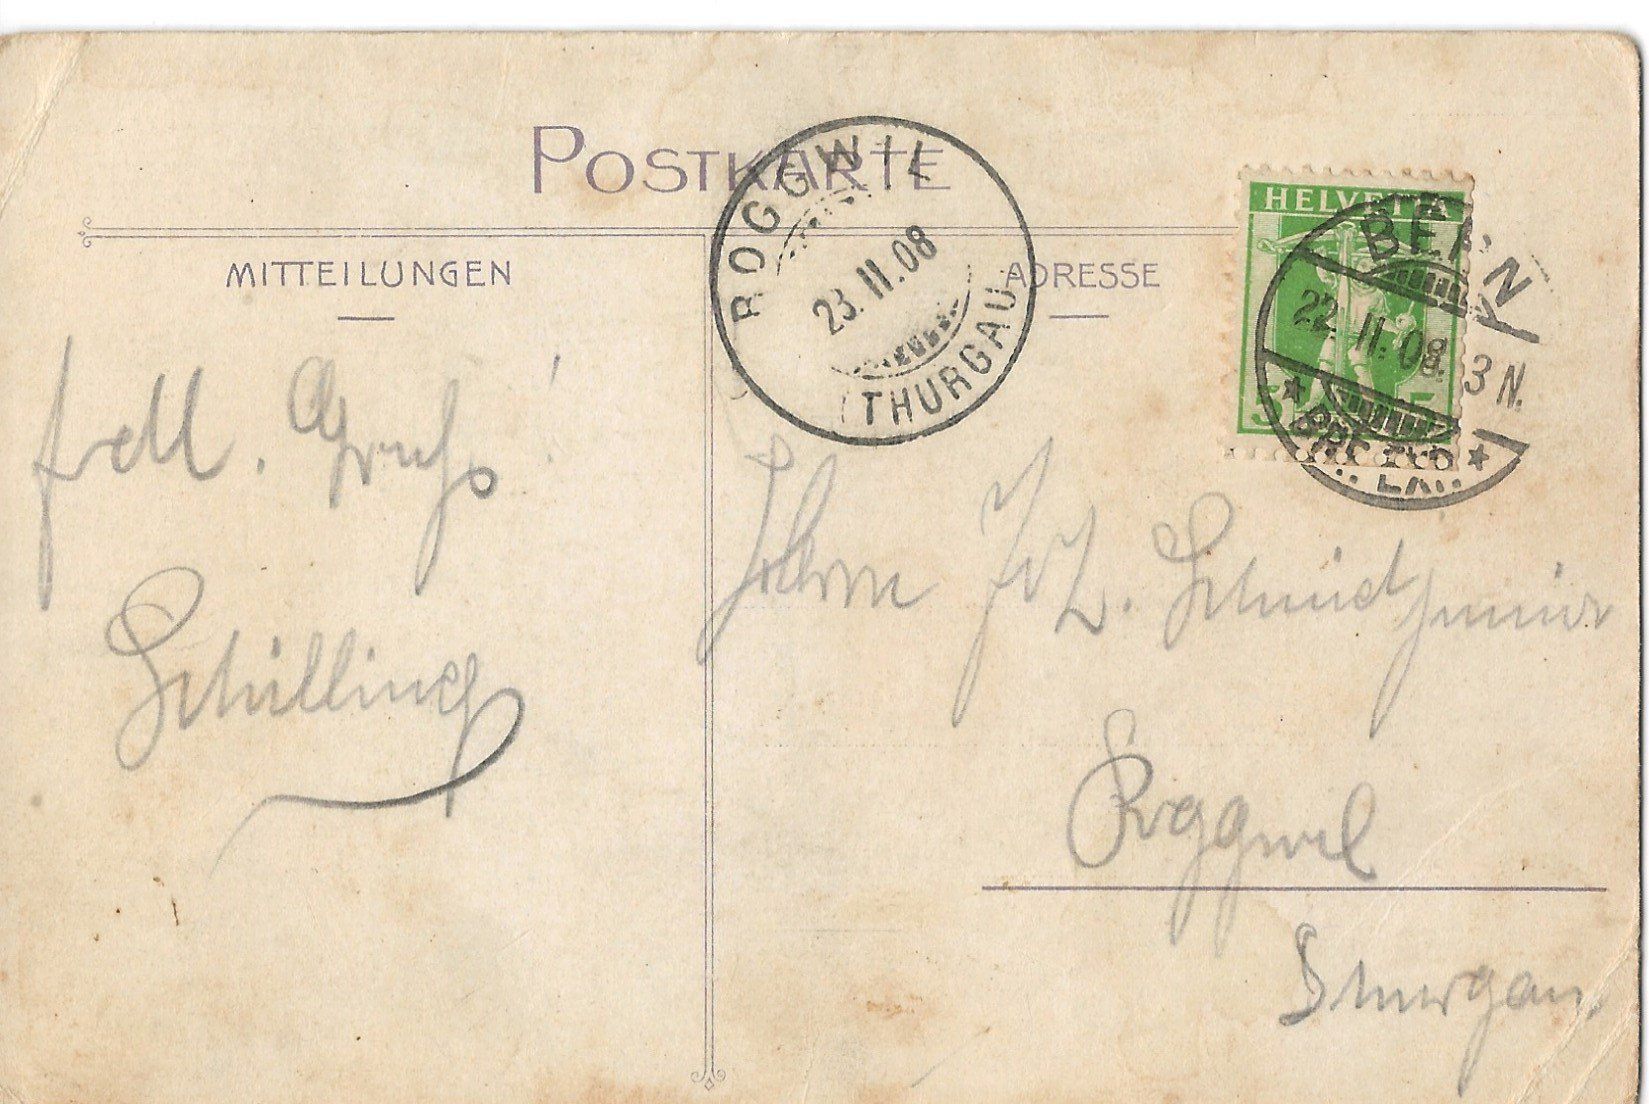 POSTKARTE
MITTEILUNGEN
ADRESSE
ROGGWIL
23.II.08
(THURGAU)
HELVETIA
5 5
BERN
22.II.08. 3 N.
frdl. Gruss!
Schilling
Herrn J. Schmid junior
Roggwil
Thurgau.